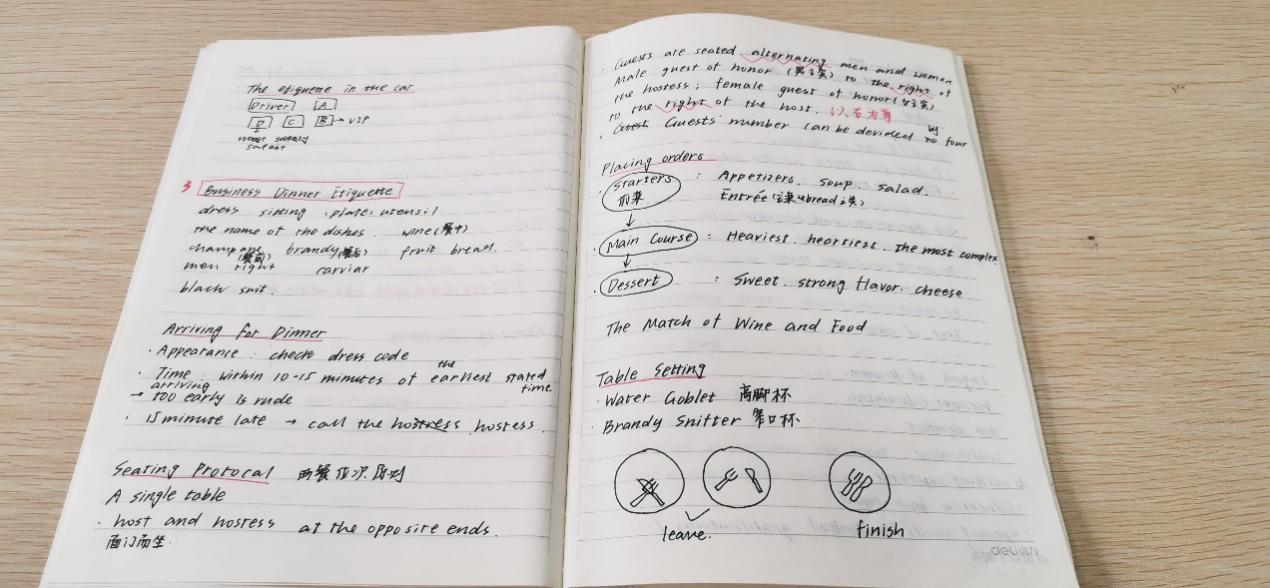 The etiquene in the car
Driver A
D C B → VIP
safest
3 Business Dinner Etiquette
dress sitting plate utensil
the name of the dishes. wine(餐中)
brandy(餐后) fruit bread.
(餐前)
men right carviar
black suit.
Arriving for Dinner
· Appearance : check dress code
· Time : within 10-15 minutes of the earliest stated time
→ arriving too early is rude
· 15 minute late → call the hostress hostess.
Seating Protocal 西餐位次原则
A single table
· host and hostess at the opposite ends.
面门而坐.
· Guests are seated alternating men and women
Male guest of honor (男主宾) to the right of
the hostess ; female guest of honor (女主宾)
to the right of the host. 以右为尊
· Guests' number can be devided by to four
Placing orders
· Starters : Appetizers. soup salad.
前菜 Entrée
↓
· Main Course : Heaviest. heartiest. the most complex.
↓
· Dessert : Sweet. strong flavor. cheese
The Match of Wine and Food
Table Setting
· Water Goblet 高脚杯
· Brandy Snifter 窄口杯
leave. finish
deli